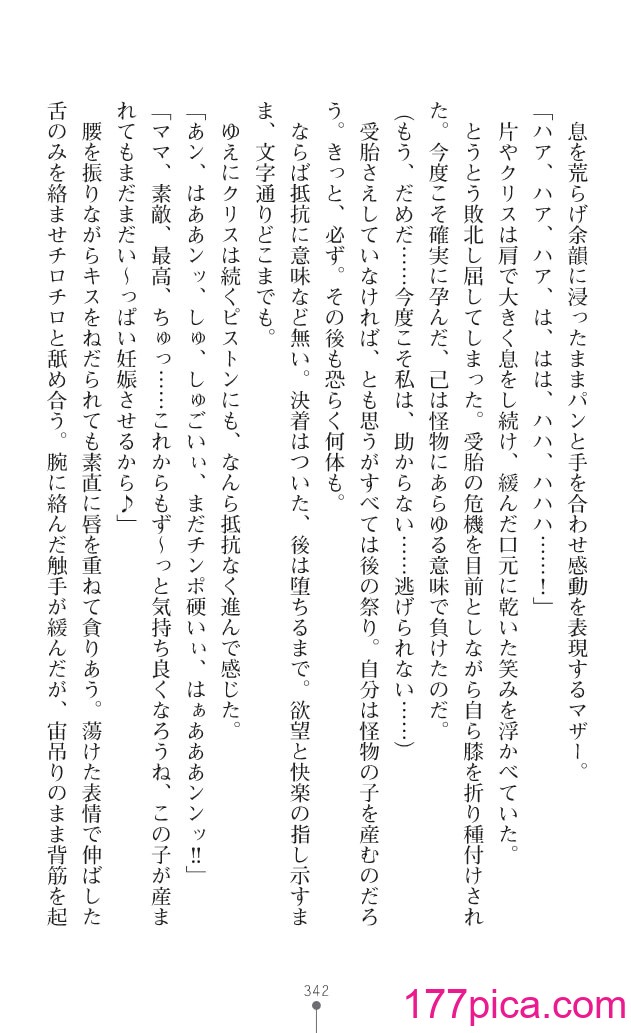 息を荒らげ余韻に浸ったままパンと手を合わせ感動を表現するマザー。
「ハア、ハア、ハア、は、はは、ハハ、ハハハ……！」
片やクリスは肩で大きく息をし続け、緩んだ口元に乾いた笑みを浮かべていた。
とうとう敗北し屈してしまった。受胎の危機を目前としながら自ら膝を折り種付けされ
た。今度こそ確実に孕んだ、己は怪物にあらゆる意味で負けたのだ。
（もう、だめだ……今度こそ私は、助からない……逃げられない……）
受胎さえしていなければ、とも思うがすべては後の祭り。自分は怪物の子を産むのだろ
う。きっと、必ず。その後も恐らく何体も。
ならば抵抗に意味など無い。決着はついた、後は堕ちるまで。欲望と快楽の指し示すま
ま、文字通りどこまでも。
ゆえにクリスは続くピストンにも、なんら抵抗なく進んで感じた。
「あン、はああンッ、しゅ、しゅごいぃ、まだチンポ硬いぃ、はぁあああンンッ‼」
「ママ、素敵、最高、ちゅっ……これからもず～っと気持ち良くなろうね、この子が産ま
れてもまだまだい～っぱい妊娠させるから♪」
腰を振りながらキスをねだられても素直に唇を重ねて貪りあう。蕩けた表情で伸ばした
舌のみを絡ませチロチロと舐め合う。腕に絡んだ触手が緩んだが、宙吊りのまま背筋を起
342
177pica.com